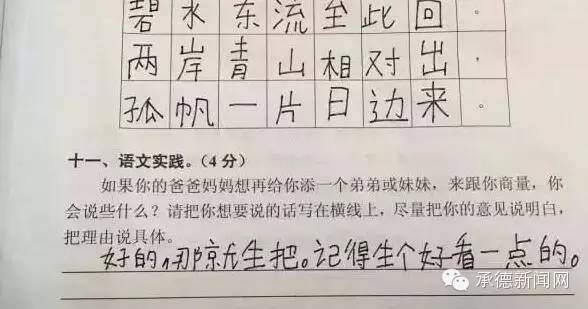 碧水东流至此回。
两岸青山相对出，
孤帆一片日边来。
十一、语文实践。（4分）
如果你的爸爸妈妈想再给你添一个弟弟或妹妹，来跟你商量，你
会说些什么？请把你想要说的话写在横线上，尽量把你的意见说明白，
把理由说具体。
好的，那就生把。记得生个好看一点的。
承德新闻网